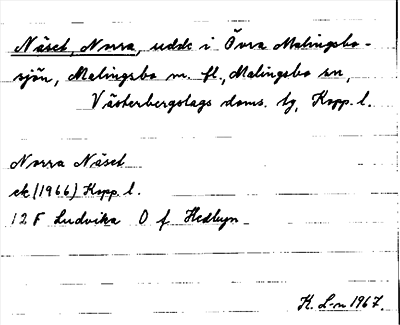 Näset, Norra, udde i Övra Malingsbo-
sjön, Malingsbo m. fl., Malingsbo sn,
Västerbergslags doms. tg, Kopp. l.
Norra Näset
ek (1966) Kopp. l.
12 F Ludvika O f Hedbyn
K. L-n 1967.